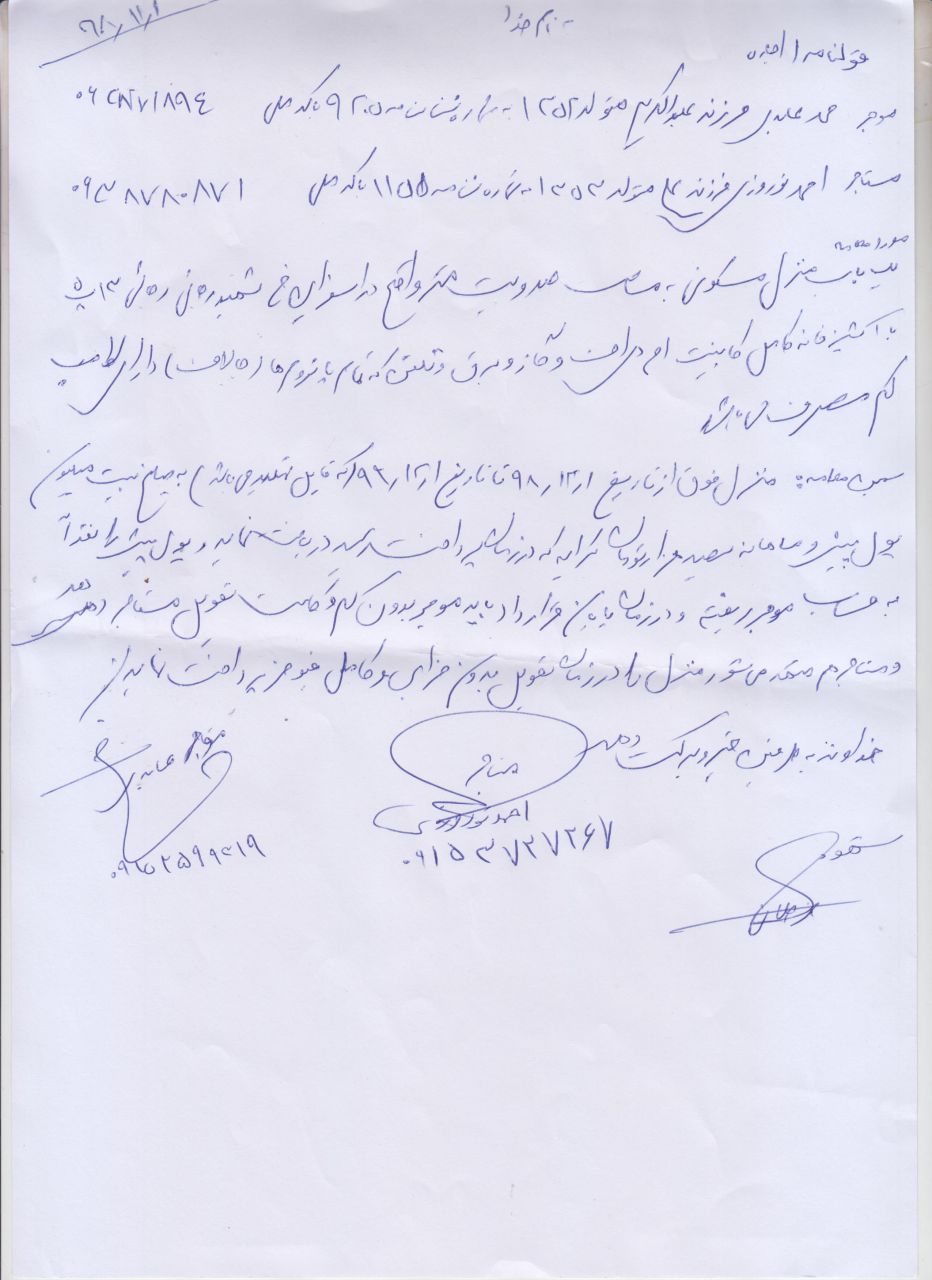 به نام خدا
۹۸/۱۲/۱
قولنامه اجاره
موجر محمد عابدی فرزند عبدالکریم متولد ۱۳۵۲ به شماره شناسنامه ۹۲۰۵ با کد ملی
مستاجر احمد نوروزی فرزند علی متولد ۱۳۵۳ به شماره شناسنامه ۱۱۵۵ با کد ملی ۰۹۳۸۷۸۰۸۷۱
مورد معامله
یک باب منزل مسکونی به مساحت صدو بیست متر واقع در اسفراین خ شهید رجائی رجائی ۱۳ پ
با آشپزخانه کامل کابینت ام دی اف و گاز و برق و تلفن که تمام پاترومها (چالاف) دارای لامپ
کم مصرف می باشد
منزل فوق از تاریخ ۹۸/۱۲/۱ تا تاریخ ۹۹/۱۲/۱ (که قابل تمدید می باشد) به مبلغ بیست میلیون
پول پیش و ماهانه سیصد هزار تومان کرایه که در زمان پرداخت رسید دریافت نماید و پول پیش را نقداً
به حساب موجر ریخته و در زمان پایان قرار داد باید موجر بدون کم و کاست تحویل مستاجر دهد
و مستاجر هم متعهد می شود منزل را در زمان تحویل بدون خرابی و کامل قبوض پرداخت نماید
خداوند به طرفین خیر و برکت دهد
موجر عابدی
مستاجر
احمد نوروزی
۰۹۱۵۳۷۲۷۲۶۷